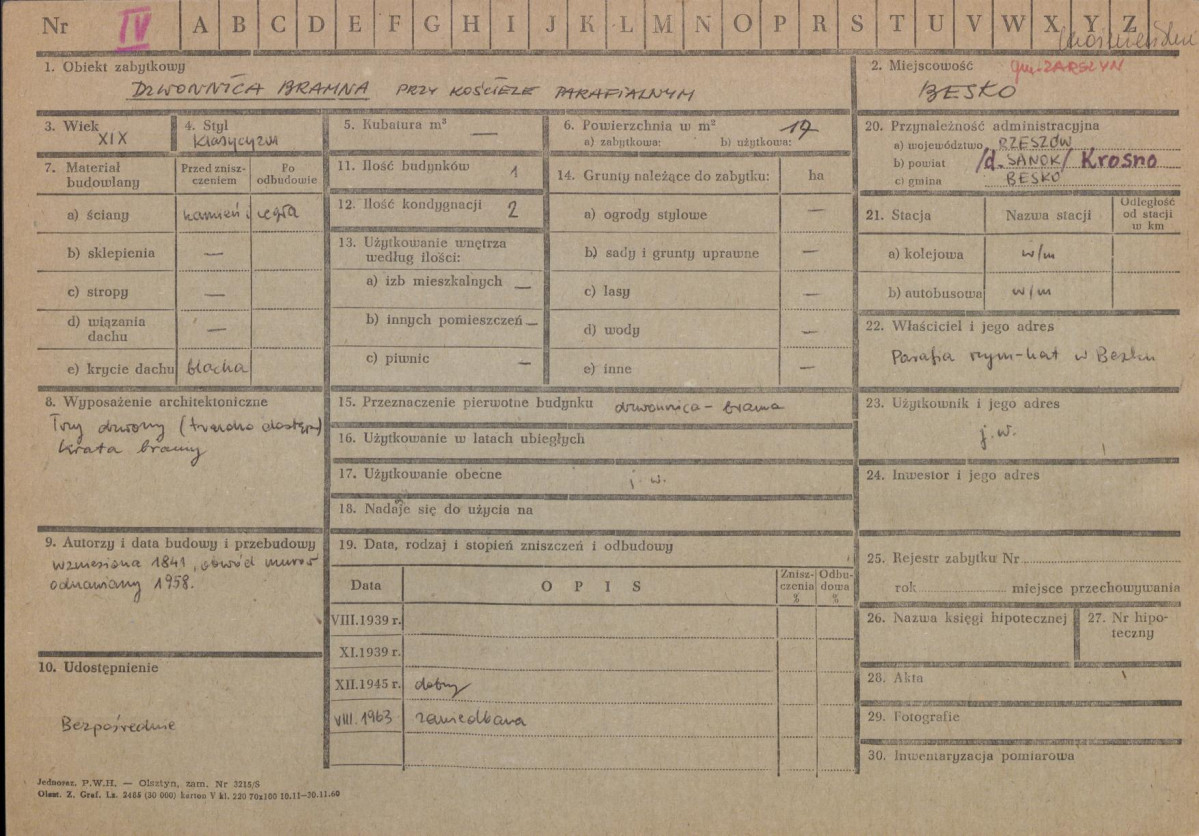 Nr IV A B C D E F G H I J K L M N O P R S T U V W X Y Z
1. Obiekt zabytkowy
DZWONNICA BRAMNA PRZY KOŚCIELE PARAFIALNYM
2. Miejscowość gm. ZARSZYN
BESKO
3. Wiek
XIX
4. Styl
klasycyzm
5. Kubatura m³ —
6. Powierzchnia w m² 17
a) zabytkowa: b) użytkowa:
20. Przynależność administracyjna
a) województwo RZESZÓW
b) powiat /d. SANOK/ Krosno
c) gmina BESKO
7. Materiał budowlany
Przed znisz-
czeniem
Po
odbudowie
a) ściany kamień i cegła
b) sklepienia —
c) stropy —
d) wiązania
dachu —
e) krycie dachu blacha
11. Ilość budynków 1
12. Ilość kondygnacji 2
13. Użytkowanie wnętrza
według ilości:
a) izb mieszkalnych —
b) innych pomieszczeń —
c) piwnic —
14. Grunty należące do zabytku: ha
a) ogrody stylowe —
b) sady i grunty uprawne —
c) lasy —
d) wody —
e) inne —
21. Stacja Nazwa stacji
Odległość
od stacji
w km
a) kolejowa w/m
b) autobusowa w/m
22. Właściciel i jego adres
Parafia rzym-kat w Besku
8. Wyposażenie architektoniczne
Trzy dzwony (trudno dostępne)
krata bramy
15. Przeznaczenie pierwotne budynku dzwonnica - brama
16. Użytkowanie w latach ubiegłych
17. Użytkowanie obecne j. w.
18. Nadaje się do użycia na
23. Użytkownik i jego adres
j. w.
24. Inwestor i jego adres
9. Autorzy i data budowy i przebudowy
wzniesiona 1841, obwód murów
odnawiany 1958.
19. Data, rodzaj i stopień zniszczeń i odbudowy
Data O P I S
Znisz-
czenia
%
Odbu-
dowa
%
VIII.1939 r.
XI.1939 r.
XII.1945 r. dobry
VIII. 1963 zaniedbana
25. Rejestr zabytku Nr
rok miejsce przechowywania
26. Nazwa księgi hipotecznej
27. Nr hipo-
teczny
28. Akta
29. Fotografie
30. Inwentaryzacja pomiarowa
10. Udostępnienie
Bezpośrednie
Jednoraz. P.W.H. — Olsztyn, zam. Nr 3215/S
Olszt. Z. Graf. Lz. 2465 (30 000) karton V kl. 220 70x100 10.11—30.11.60